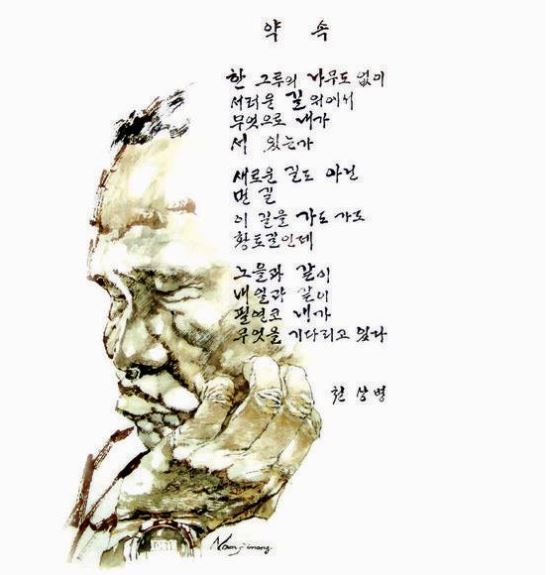 약 속
한 그루의 나무도 없이
서러운 길 위에서
무엇으로 내가
서 있는가
새로운 길도 아닌
먼 길
이 길을 가도 가도
황토길인데
노을과 같이
내일과 같이
필연코 내가
무엇을 기다리고 있다
천 상 병